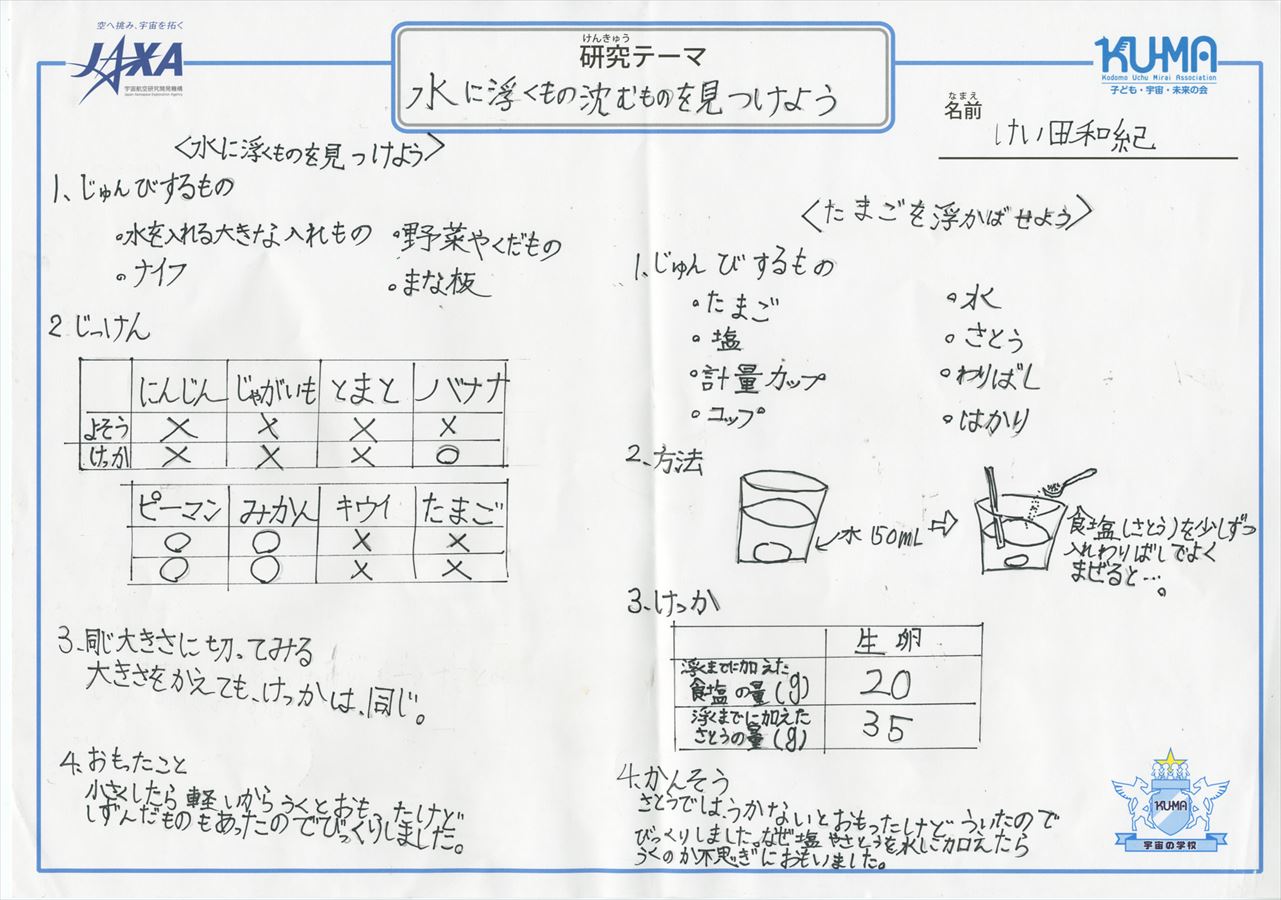 空へ挑み、宇宙を拓く
JAXA
宇宙航空研究開発機構
Japan Aerospace Exploration Agency
けんきゅう
研究テーマ
水に浮くもの沈むものを見つけよう
KU-MA
Kodomo Uchu Mirai Association
子ども・宇宙・未来の会
なまえ
名前
けい田和紀
<水に浮くものを見つけよう>
1、じゅんびするもの
・水を入れる大きな入れもの ・野菜やくだもの
・ナイフ ・まな板
2 じっけん
にんじん じゃがいも とまと バナナ
よそう × × × ×
けっか × × × ○
ピーマン みかん キウイ たまご
○ ○ × ×
○ ○ × ×
3、同じ大きさに切ってみる
大きさをかえても、けっかは、同じ。
4、おもったこと
小さくしたら軽いからうくとおもったけど
しずんだものもあったのでびっくりしました。
<たまごを浮かばせよう>
1、じゅんびするもの
・たまご ・水
・塩 ・さとう
・計量カップ ・わりばし
・コップ ・はかり
2、方法
水150mL
食塩(さとう)を少しずつ
入れわりばしでよく
まぜると…。
3、けっか
生卵
浮くまでに加えた
食塩の量(g) 20
浮くまでに加えた
さとうの量(g) 35
4、かんそう
さとうでは、うかないとおもったけど、ういたので
びっくりしました。なぜ塩やさとうを水に加えたら
うくのか不思ぎにおもいました。
KUMA
宇宙の学校